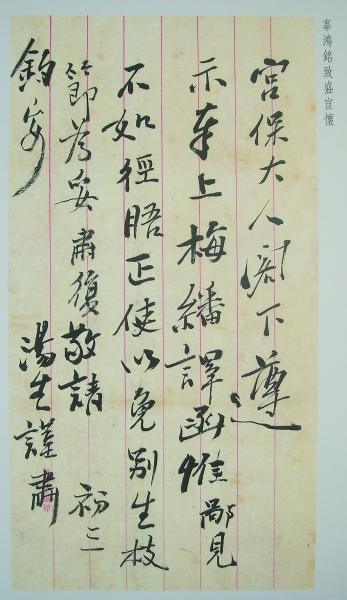 辜鴻銘致盛宣懷
宮保大人閣下遵
示奉上梅繙譯函惟鄙見
不如徑晤正使以免別生枝
節為妥肅復敬請
鈞安
湯生謹肅
初三